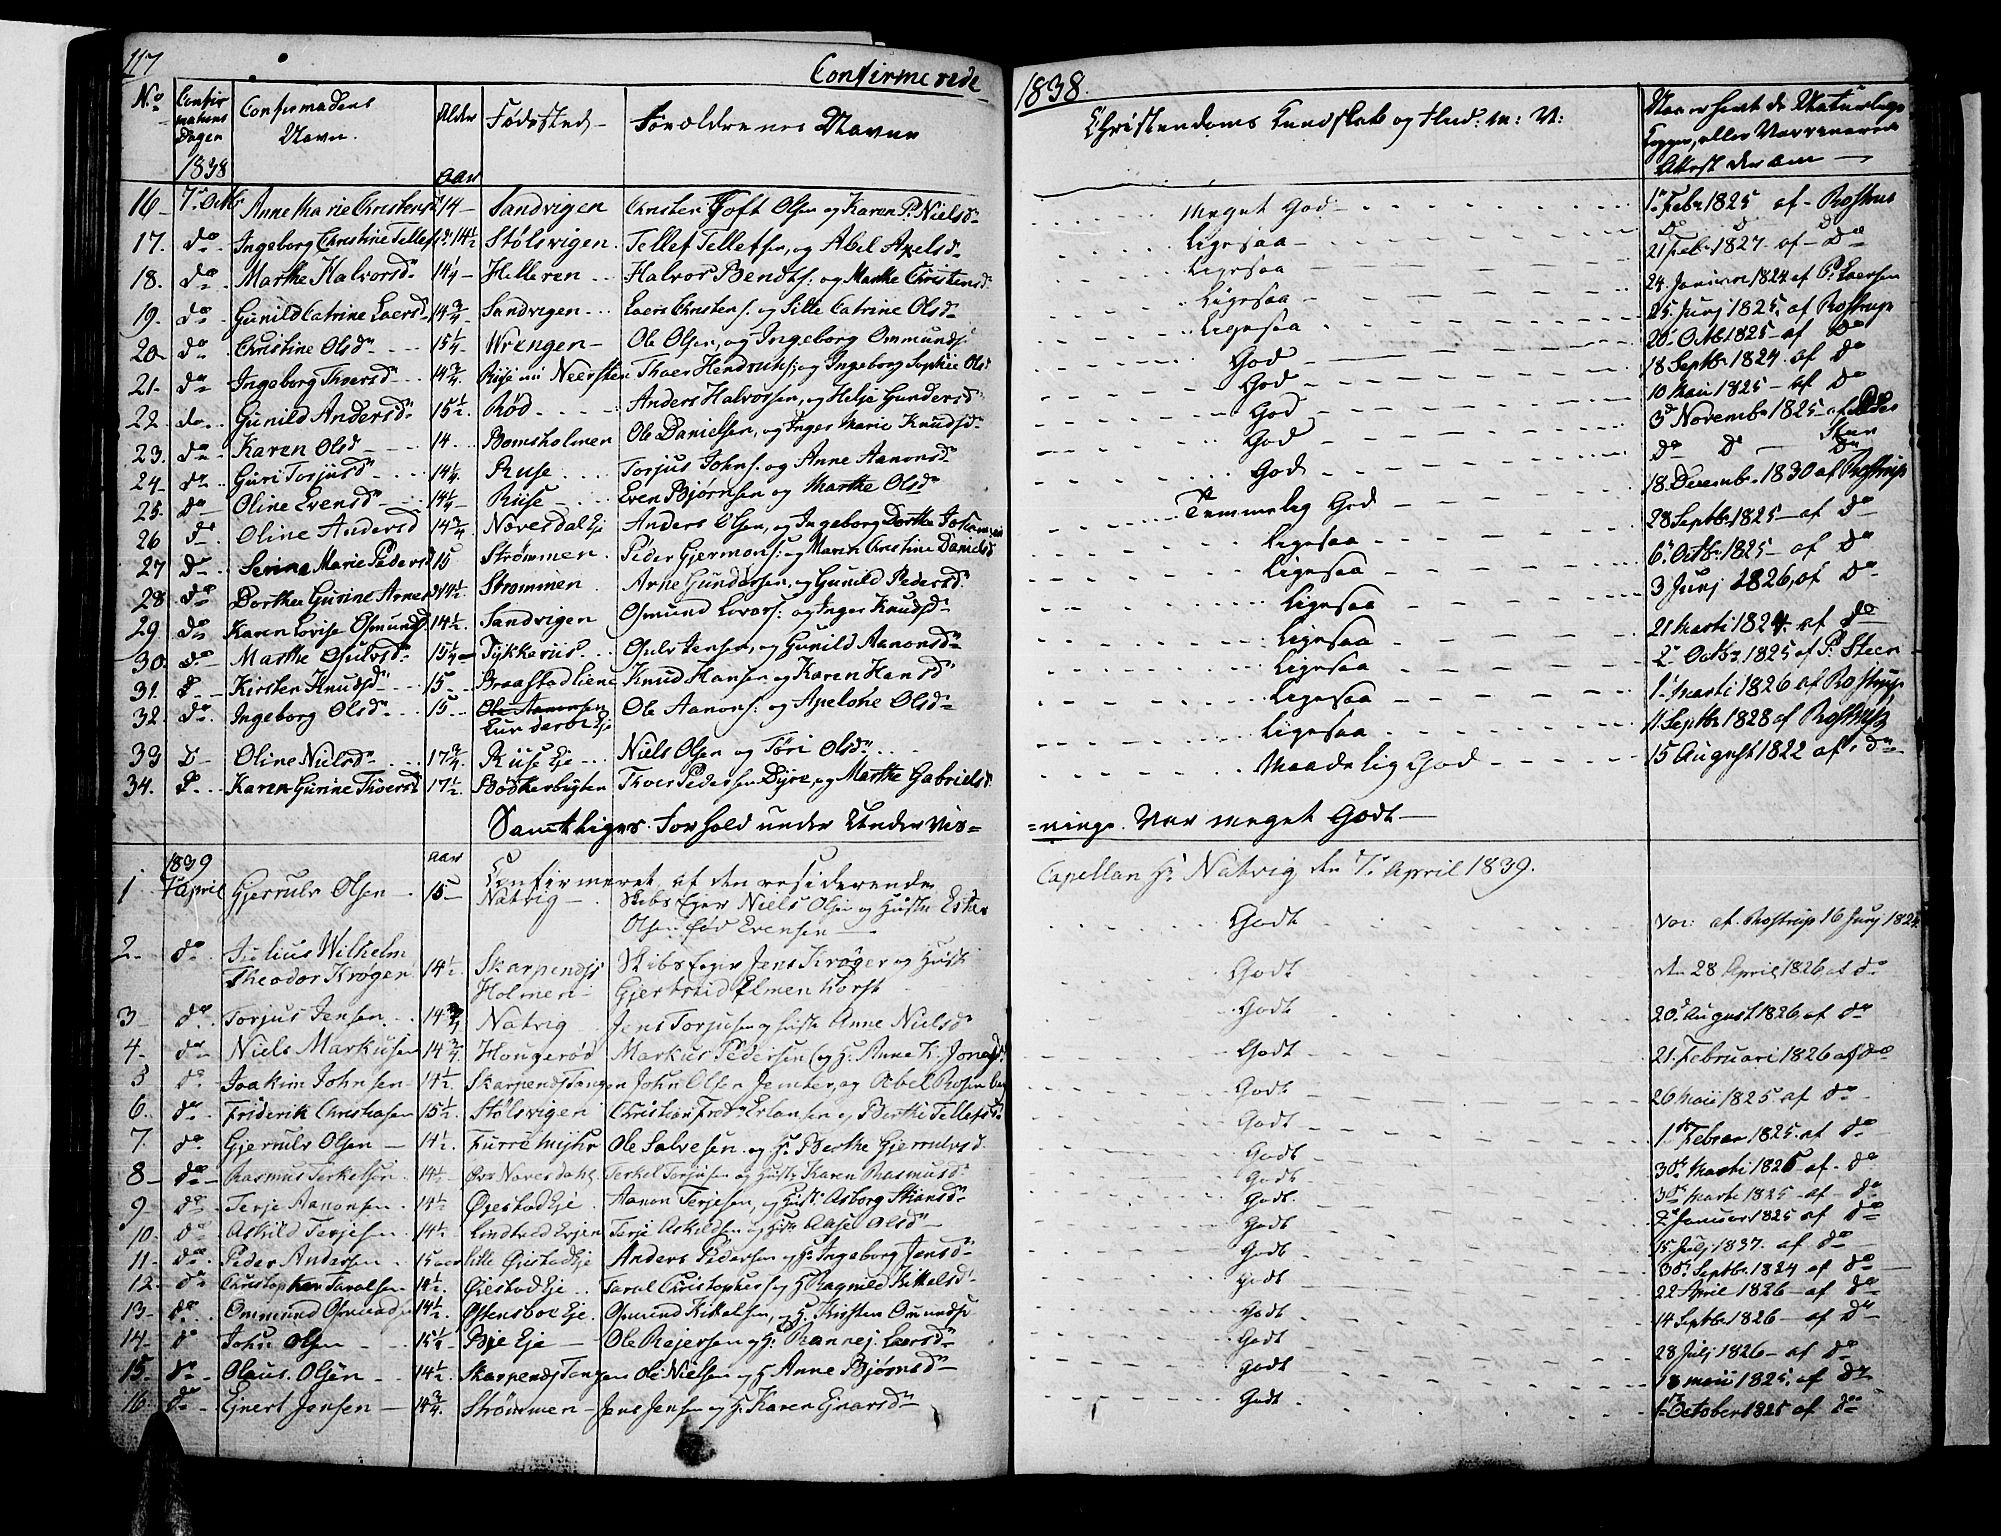 117
Confirmerede
1838.
No Confirmations Dagen 1838 Confirmandens Navn. Alder Aar Fødested Forældrenes Navne Christendoms Kundskab og Flid: m: V: Naar havt de Naturlige Kopper, eller Vaccinerede Attest derom
16 7de Octb Anne Marie Christensd 14 Sandvigen Christen Toft Olsen og Karen P. Nielsd Meget God 1 Febr 1825 af Rostrup
17. do Ingeborg Christine Tellefsd 14½ Stølsvigen Tellef Tellefsen, og Abel Axelsd Ligesaa 21 Feb. 1827. af do
18. do Marthe Halvorsd 14¼ Helleren Halvor Bendts: og Marthe Christensd Ligesaa 24 Januar 1824 af P. Laersen
19. do Gunild Catrine Laersd 14¾ Sandvigen Laers Christens. og Sille Catrine Olsd Ligesaa 25 Junj 1825. af Rostrup
20 do Christine Olsd 15¼ Wrengen Ole Olsen, og Ingeborg Ommunds. Ligesaa 20 Octb 1825 af do
21. do Ingeborg Thorsd 14¾ Neersten Thoer Hendriks: og Ingeborg Sophie Olsd God 18 Septbr 1824. af do
22. do Gunild Andersd 15½ Rød Anders Halvorsen, og Helje Gundersd God 10 Mai 1825 af do
23. do Karen Olsd 14 Bomsholmen Ole Danielsen, og Inger Marie Knudsd God 3 Novembr 1825 af
24 do Guri Torjusd 14¼ Ruse Torjus Johns. og Anne Aanonsd God do do do
25. do Oline Evensd 14¼ Riise Even Bjørnsen og Marthe Olsd God 18. Decembr 1830 af Rostrup
26 do Oline Andersd 14¾ Næversdal Eje Anders Olsen, og Ingeborg Dorthe Temmelig God 28 Septbr 1825 af do
27 do Serine Marie Pedersd 15 Strømmen Peder Gjermons: og Maren Christine Danielsd Ligesaa 6 Octbr 1825 af do
28 do Dorthea Gurine Arnesd 14½ Strømmen Arne Gundersen, og Gunild Pedersd. Ligesaa 3 Junj 1826, af do
29. do Karen Lovise Osmundsd 14½ Sandvigen Osmund Evars: og Inger Knudsd Ligesaa 21 Marti 1824. af do
30. do Marthe Gulvsd 15¼ Tykkerus Gulv Jensen, og Gunild Aanonsd Ligesaa 2 Octbr 1825 af P. Steen
31. do Kirsten Knudsd 15 Braastad Knud Hansen og Karen Hansd Ligesaa 1 Marti 1826 af Rostrup
32. do Ingeborg Olsd 15 Lunderøe Eje Ole Aanons: og Axelone Olsd Ligesaa 11 Septbr 1828 af Rostrup
33 do Oline Nielsd 17¾ Riise Eje Niels Olsen og Tori Olsd Ligesaa 15 August 1822 af do
34. do Karen Gurine Thoersd 17½ Bødkerbugten Thoer Pedersen Dyre, og Marthe Gabrielsd. Maadelig God
Samtliges Forhold under Undervis=
=ninge. Var meget Godt
1839 Aar Confirmeret af den residerende
Capellan Hr Natvig den 7 April 1839.
1 7de April Gjerrulv Olsen 15 Natvig Skibs Eger Niels Olsen og Hustr Ester
Olsen fød Evensen Godt Vac: af. Rostrup 16 Junj 1824
2 do Julius Wilhelm
Theodor Krøger 14½ Skarpenæs
Holmen Skibs Eger Jens Krøger og Hustr
Gjertrud Elmenhorst Godt den 28 April 1826 af do
3 do Torjus Jensen 14¾ Natvig Jens Torjusen og Hustr Anne Nielsd Godt 20 August 1826, af do
4 do Niels Markusen 14¾ Hougerød Markus Pedersen og H. Anne K. Jonasd. Godt 21. Februari 1826 af do
5 do Joakim Johnsen 14½. Skarpenæs Tangen John Olsen og Abel Godt 26 Maii 1825 af do
6. do Friderik Christiasen 15½ Stølsvigen Christian Fred Erlansen og Berthe Tellefsd Godt 1 Februar 1825 af do
7. do Gjerrulv Olsen 14½. Furremyhr Ole Salvesen og H. Berthe Gjerrulvsd Godt 30 Marti 1825 af do
8 do Rasmus Terkelsen 14½ Øvr Naversdahl Terkel Torjusen og Hustr Karen Rasmusd Godt 30 Marti 1825 af do
9 do Terje Aanonsen 14½ Øiestad Eje Aanon Terjesen, og Hust Asborg Godt. 2 Januari 1825 af do
10. do Askild Terjesen 14½. Lindtvedt Terje Askildsen og Hustr Aase Olsd Godt 15 Julj 1837. af do
11 do Peder Andersen 15 aar lille Øiestad Eje Anders Pedersen og H. Ingeborg Jensd Godt 30 Septbr 1824 af do
12 do Christopher Taralsen 14½. Øiestad Eje Taral Christophersen og H Ragnild Kittelsd Godt 22 April 1826 af do
13. do Ommund Osmundsen 14½. Østensbøe Eje Osmund Kittelsen og H. Kirsten Omunds Godt 14 Septbr 1826 af do
14 do John Olsen 15¼ Bje Eje Ole Rejersen og H. Rannej Laersd Godt 28 Julj 1826 af do
15. do Olaus. Olsen 14½. Skarpenæs Tangen Ole Nielsen og H Anne Bjørnsd Godt 18 Maii 1825. af do
16. do Ejnert Jensen 14¾. Strømmen Jens Jensen og H. Karen Ejnarsd Godt 1 October 1825 af do